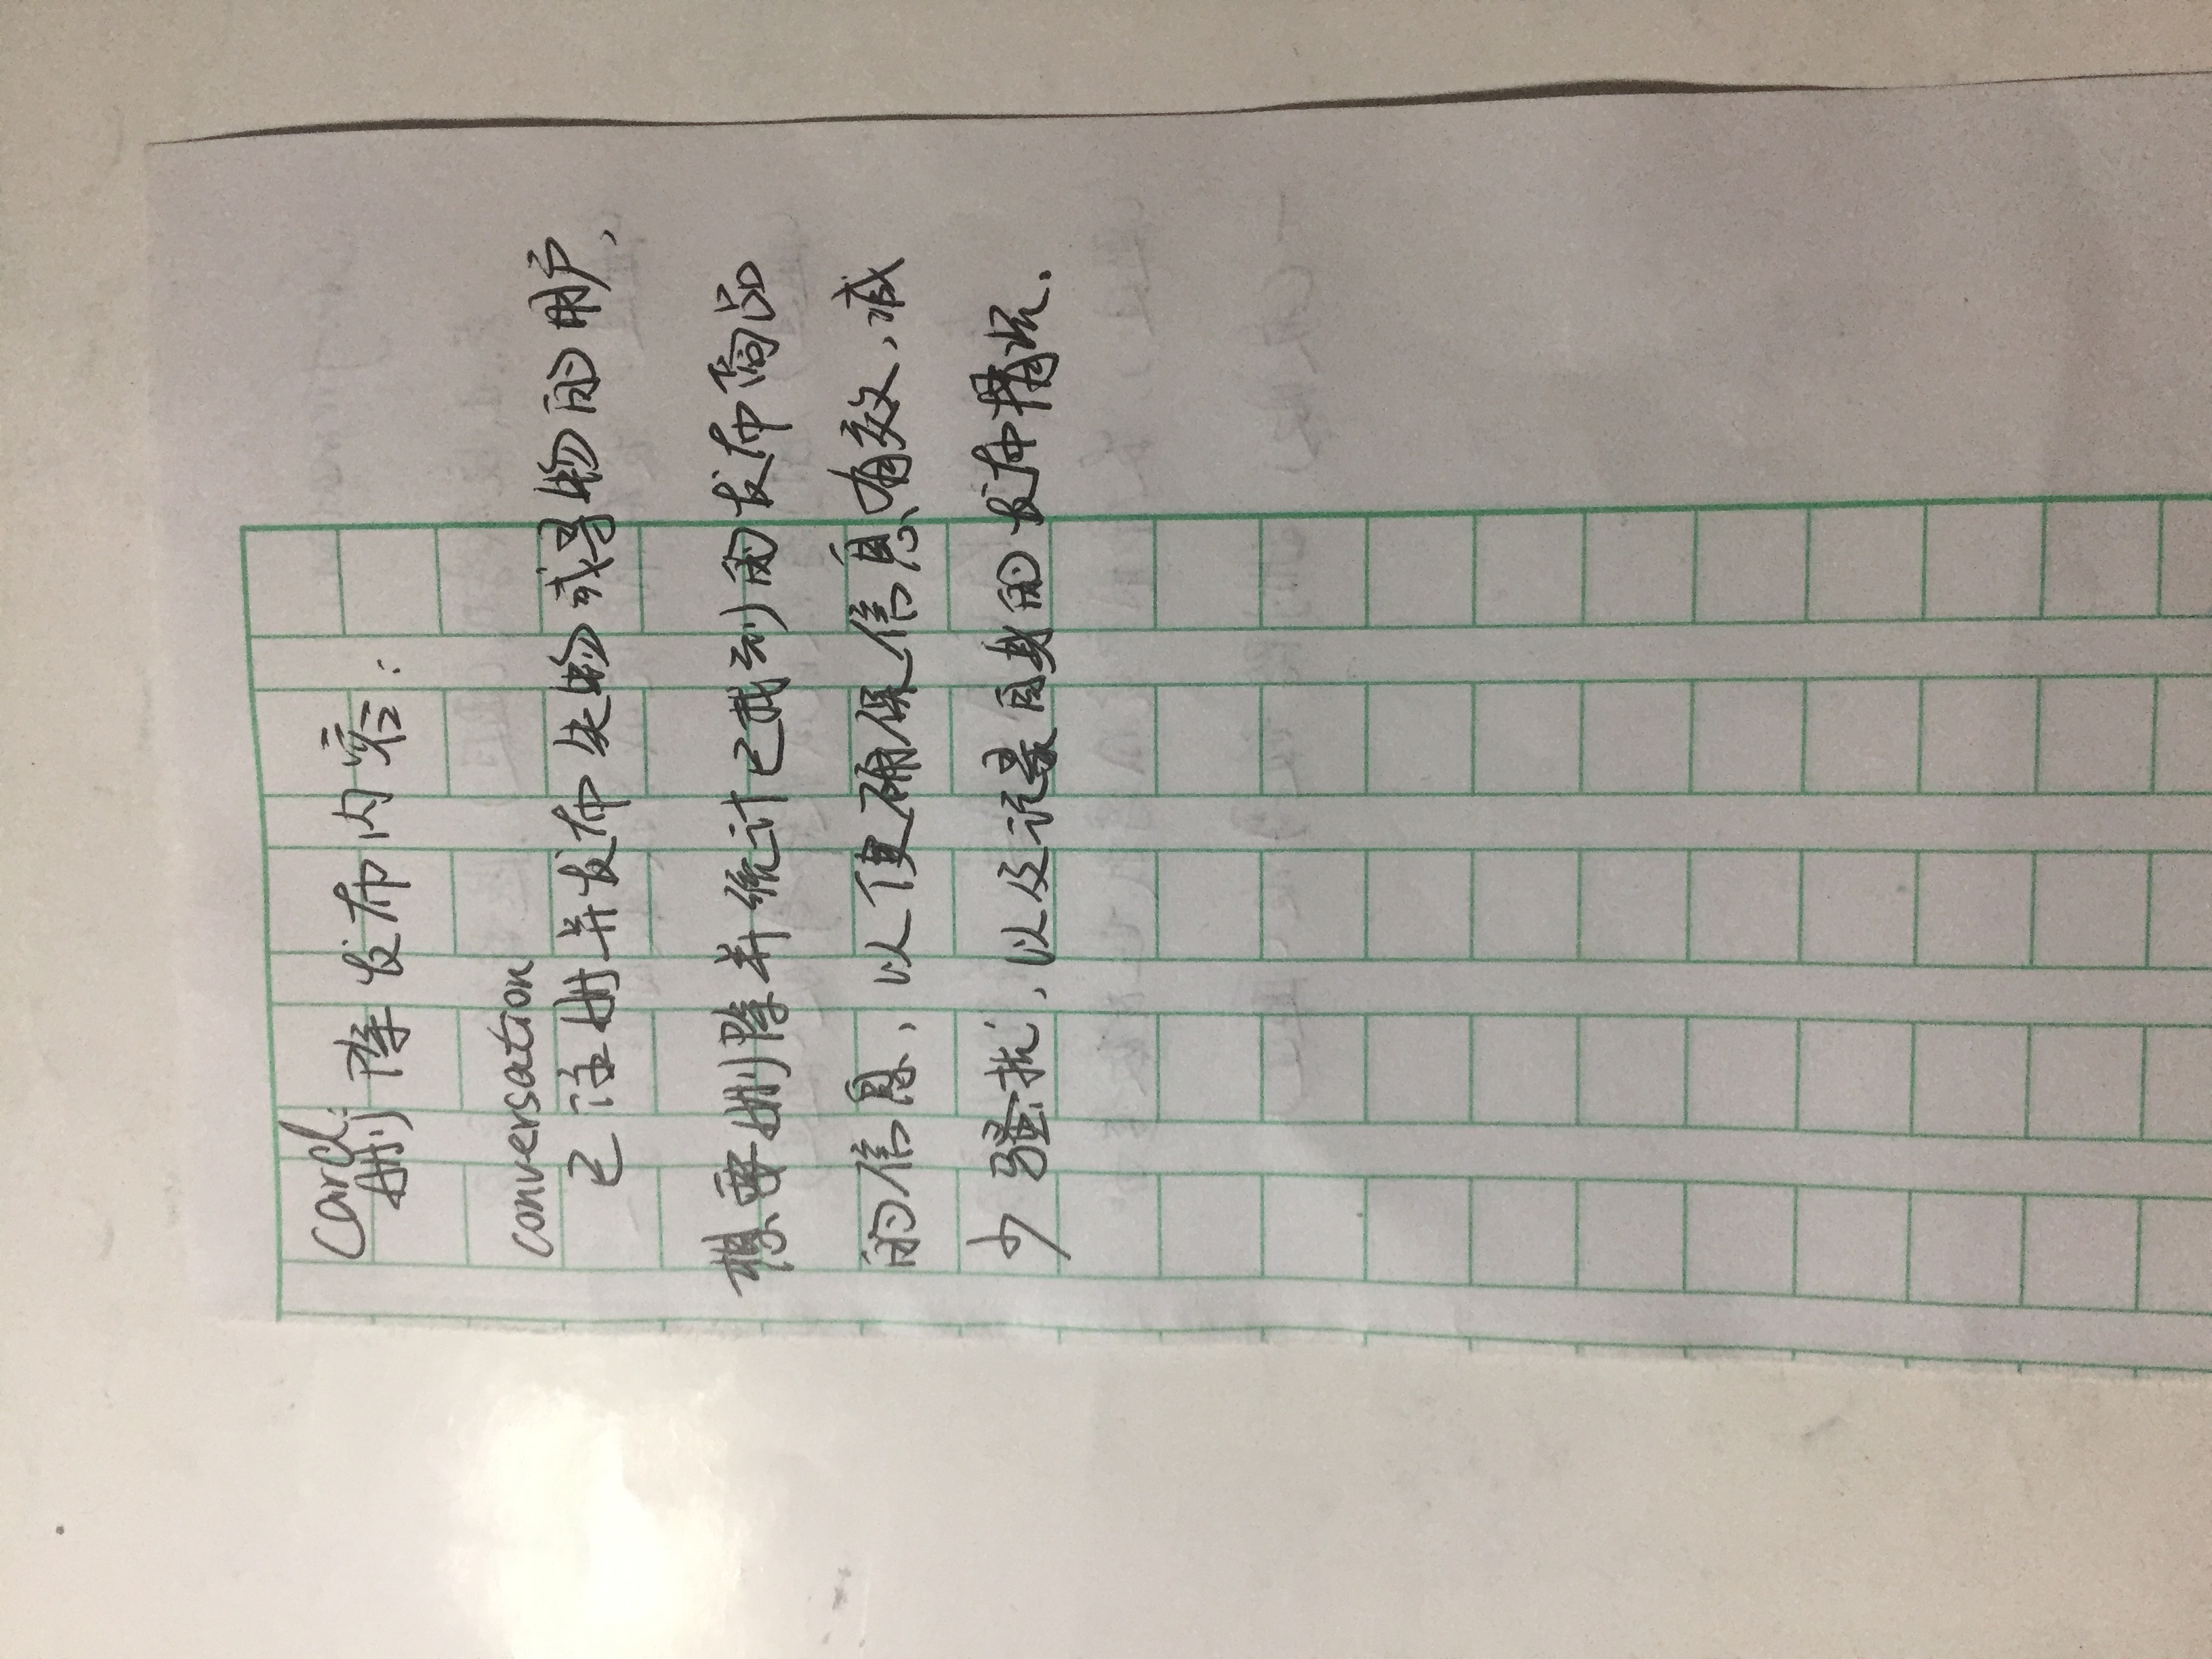 Card:
删除发布内容:
conversation
已注册并发布失物或寻物的用户,
想要删除并统计已找到的发布商品
的信息,以便确保信息有效,减
少骚扰,以及记录自身的发布情况.